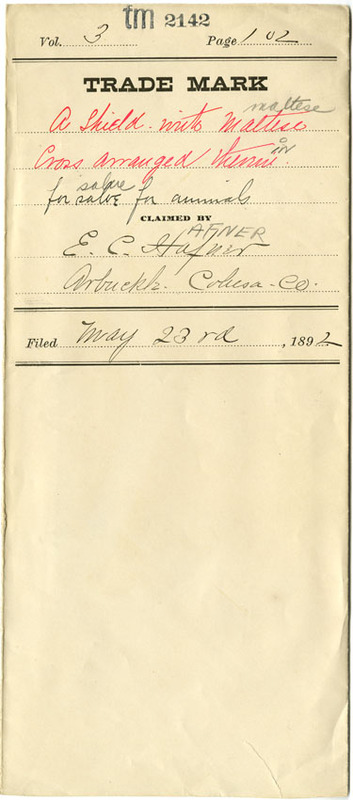 tm 2142
Vol. 3 Page 102
TRADE MARK
maltese
A Shield with Maltese
on
Cross arranged therein.
salve
for salve for animals
CLAIMED BY
AFNER
E. C. Hafner
Arbuckle. Colusa-Co.
Filed May 23rd, 1892